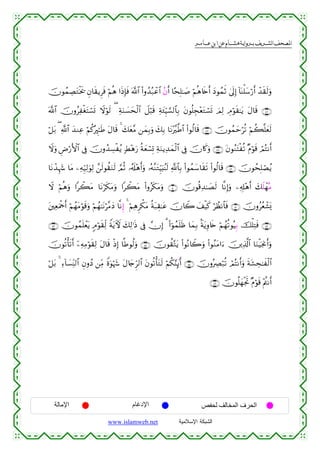 المصحف الشريف برواية هشام عن ابن عامر
وَلَقَدْ أَرْسَلْنَآ إِلَىٰ ثَمُودَ أَخَاهُمْ صَٰلِحًا أَنُ ٱعْبُدُوا۟ ٱللَّهَ فَإِذَا هُمْ فَرِيقَانِ يَخْتَصِمُونَ
۝ قَالَ يَٰقَوْمِ لِمَ تَسْتَعْجِلُونَ بِٱلسَّيِّئَةِ قَبْلَ ٱلْحَسَنَةِ ۖ لَوْلَا تَسْتَغْفِرُونَ ٱللَّهَ
لَعَلَّكُمْ تُرْحَمُونَ ۝ قَالُوا۟ ٱطَّيَّرْنَا بِكَ وَبِمَن مَّعَكَ ۚ قَالَ طَٰٓئِرُكُمْ عِندَ ٱللَّهِ ۖ بَلْ
أَنتُمْ قَوْمٌ تُفْتَنُونَ ۝ وَكَانَ فِى ٱلْمَدِينَةِ تِسْعَةُ رَهْطٍ يُفْسِدُونَ فِى ٱلْأَرْضِ وَلَا
يُصْلِحُونَ ۝ قَالُوا۟ تَقَاسَمُوا۟ بِٱللَّهِ لَنُبَيِّتَنَّهُۥ وَأَهْلَهُۥ ثُمَّ لَنَقُولَنَّ لِوَلِيِّهِۦ مَا شَهِدْنَا
مُهْلَكَ أَهْلِهِۦ وَإِنَّا لَصَٰدِقُونَ ۝ وَمَكَرُوا۟ مَكْرًا وَمَكَرْنَا مَكْرًا وَهُمْ لَا
يَشْعُرُونَ ۝ فَٱنظُرْ كَيْفَ كَانَ عَٰقِبَةُ مَكْرِهِمْ إِنَّا دَمَّرْنَٰهُمْ وَقَوْمَهُمْ أَجْمَعِينَ
۝ فَتِلْكَ بُيُوتُهُمْ خَاوِيَةًۢ بِمَا ظَلَمُوٓا۟ ۗ إِنَّ فِى ذَٰلِكَ لَءَايَةً لِّقَوْمٍ يَعْلَمُونَ ۝
وَأَنجَيْنَا ٱلَّذِينَ ءَامَنُوا۟ وَكَانُوا۟ يَتَّقُونَ ۝ وَلُوطًا إِذْ قَالَ لِقَوْمِهِۦٓ أَتَأْتُونَ
ٱلْفَٰحِشَةَ وَأَنتُمْ تُبْصِرُونَ ۝ أَئِنَّكُمْ لَتَأْتُونَ ٱلرِّجَالَ شَهْوَةً مِّن دُونِ ٱلنِّسَآءِ ۚ بَلْ
أَنتُمْ قَوْمٌ تَجْهَلُونَ ۝
الحرف المخالف لحفص الإدغام الإمالة
الشبكة الإسلامية www.islamweb.net